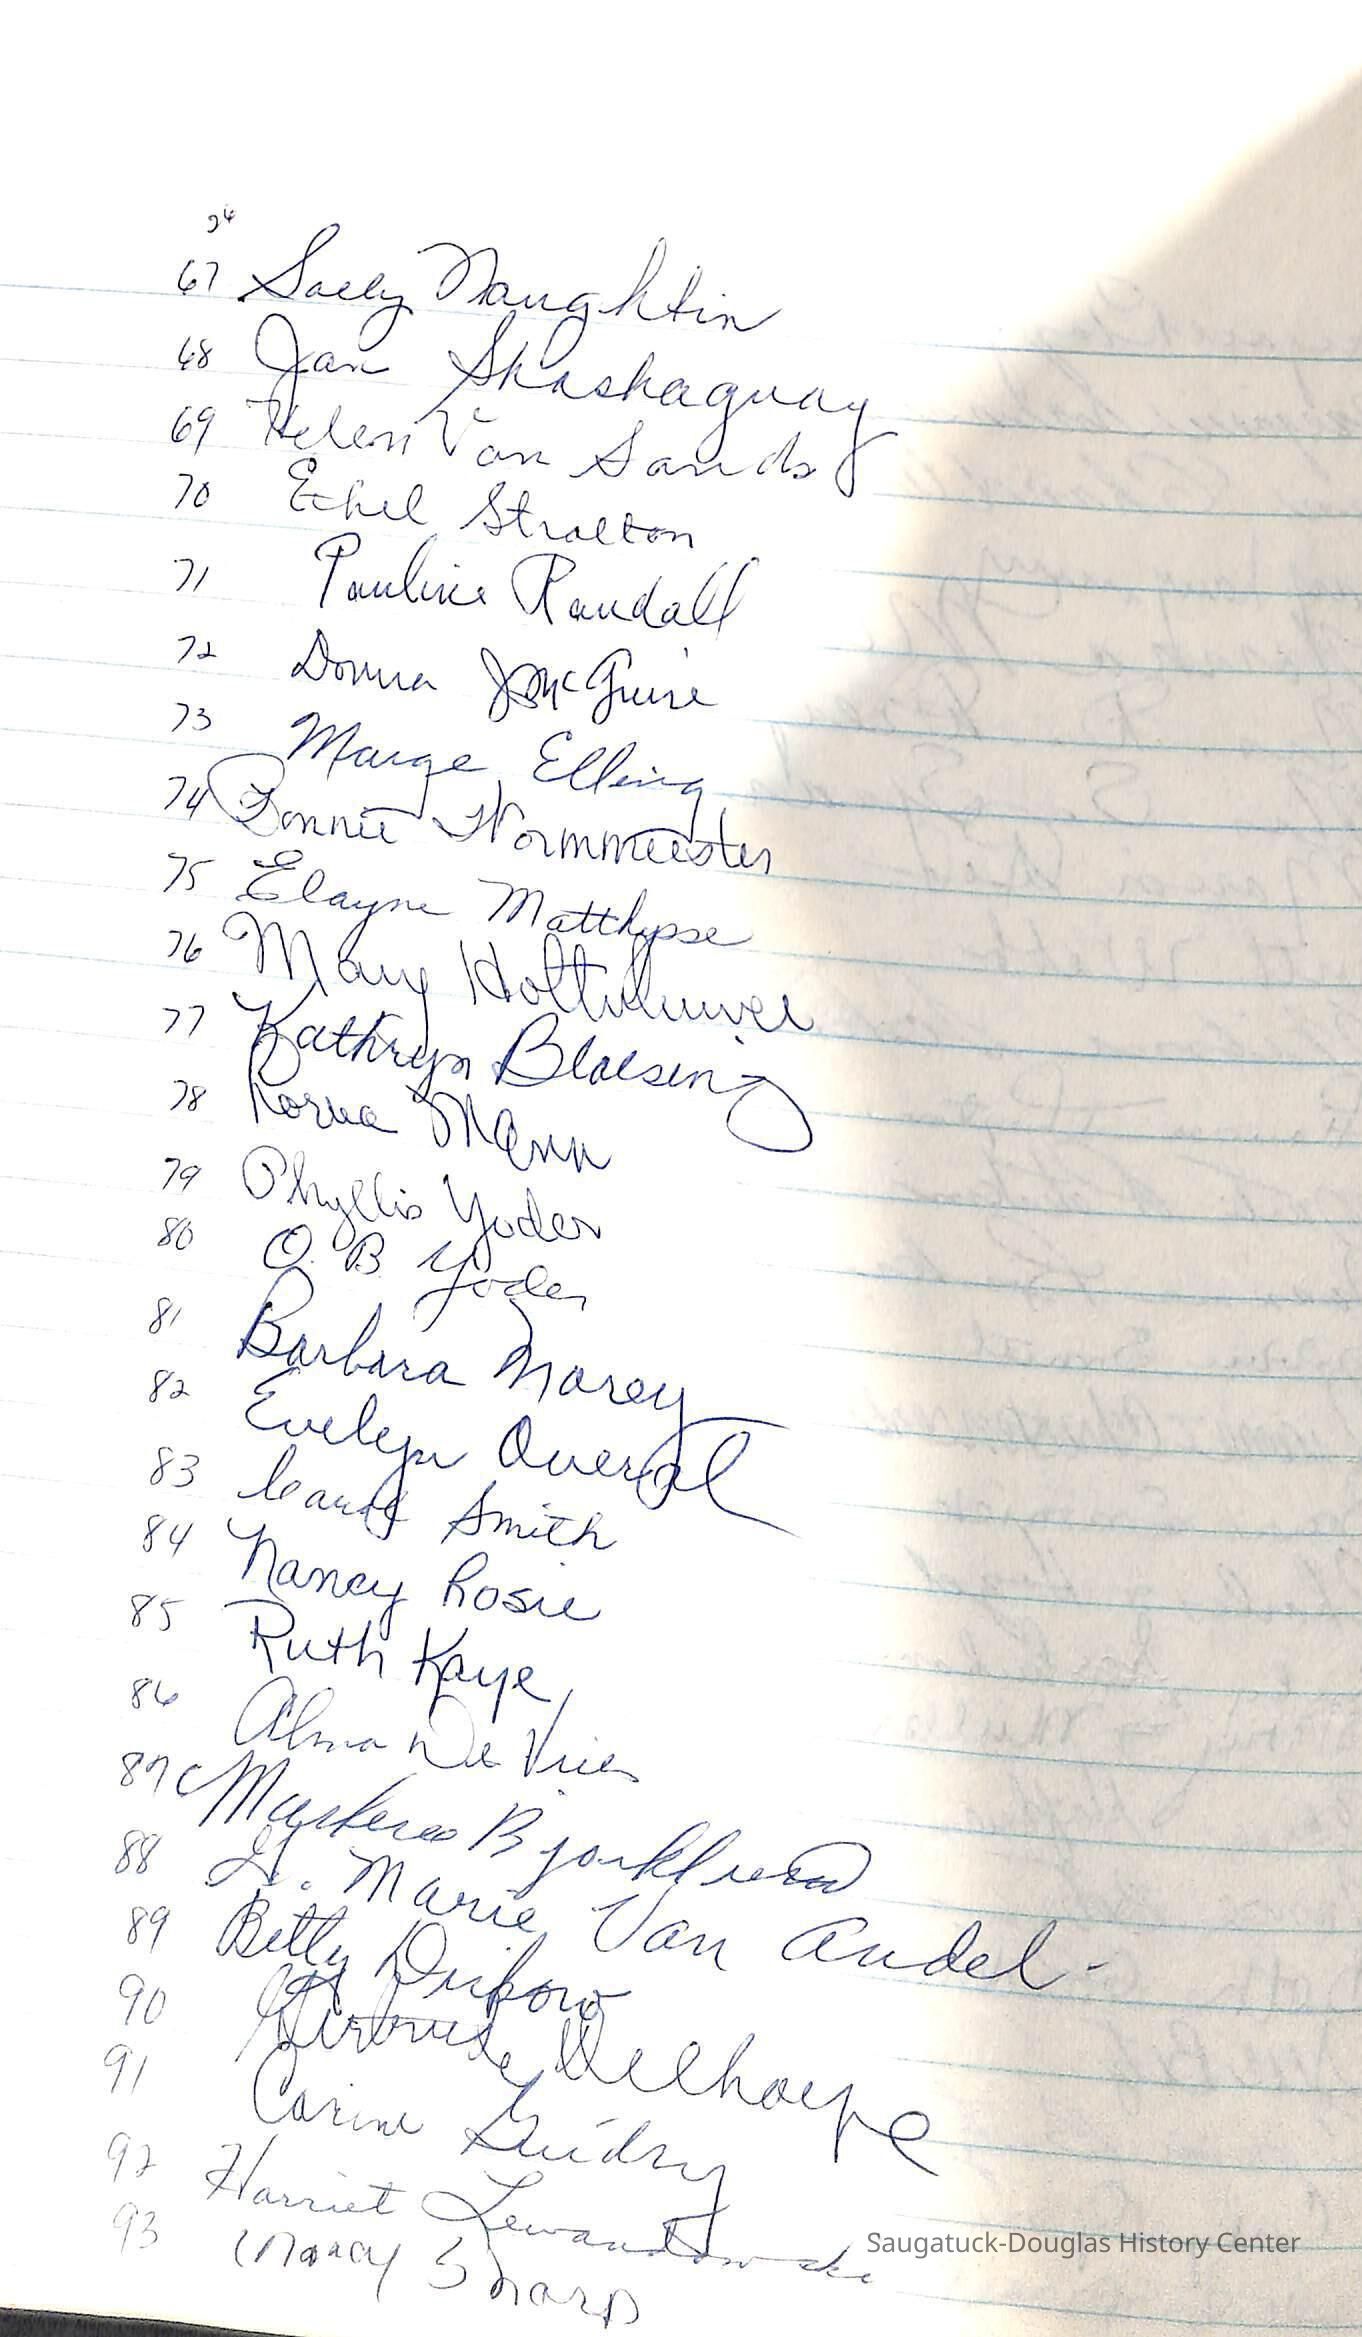 67 Sally Naughtin
68 Jan Shashaguay
69 Helen Van Sands
70 Ethel Stratton
71 Pauline Randall
72 Donna J McGuire
73 Marge Elling
74 Bonnie Wormmeester
75 Elayne Matthysse
76 Mary Holtvluwer
77 Kathryn Blaesing
78 Rorua Mann
79 Phyllis Yoder
80 O. B. Yoder
81 Barbara Morey
82 Evelyn Overal
83 Smith
84 Nancy Rosie
85 Ruth Kaye
86 Alma De Vries
87 Bjorklund
88 L. Marie Van Andel
89 Betty
90 Gertrude
91 Corine Guidry
92 Harriet Lewandowski
93 Nancy Sharp
Saugatuck-Douglas History Center